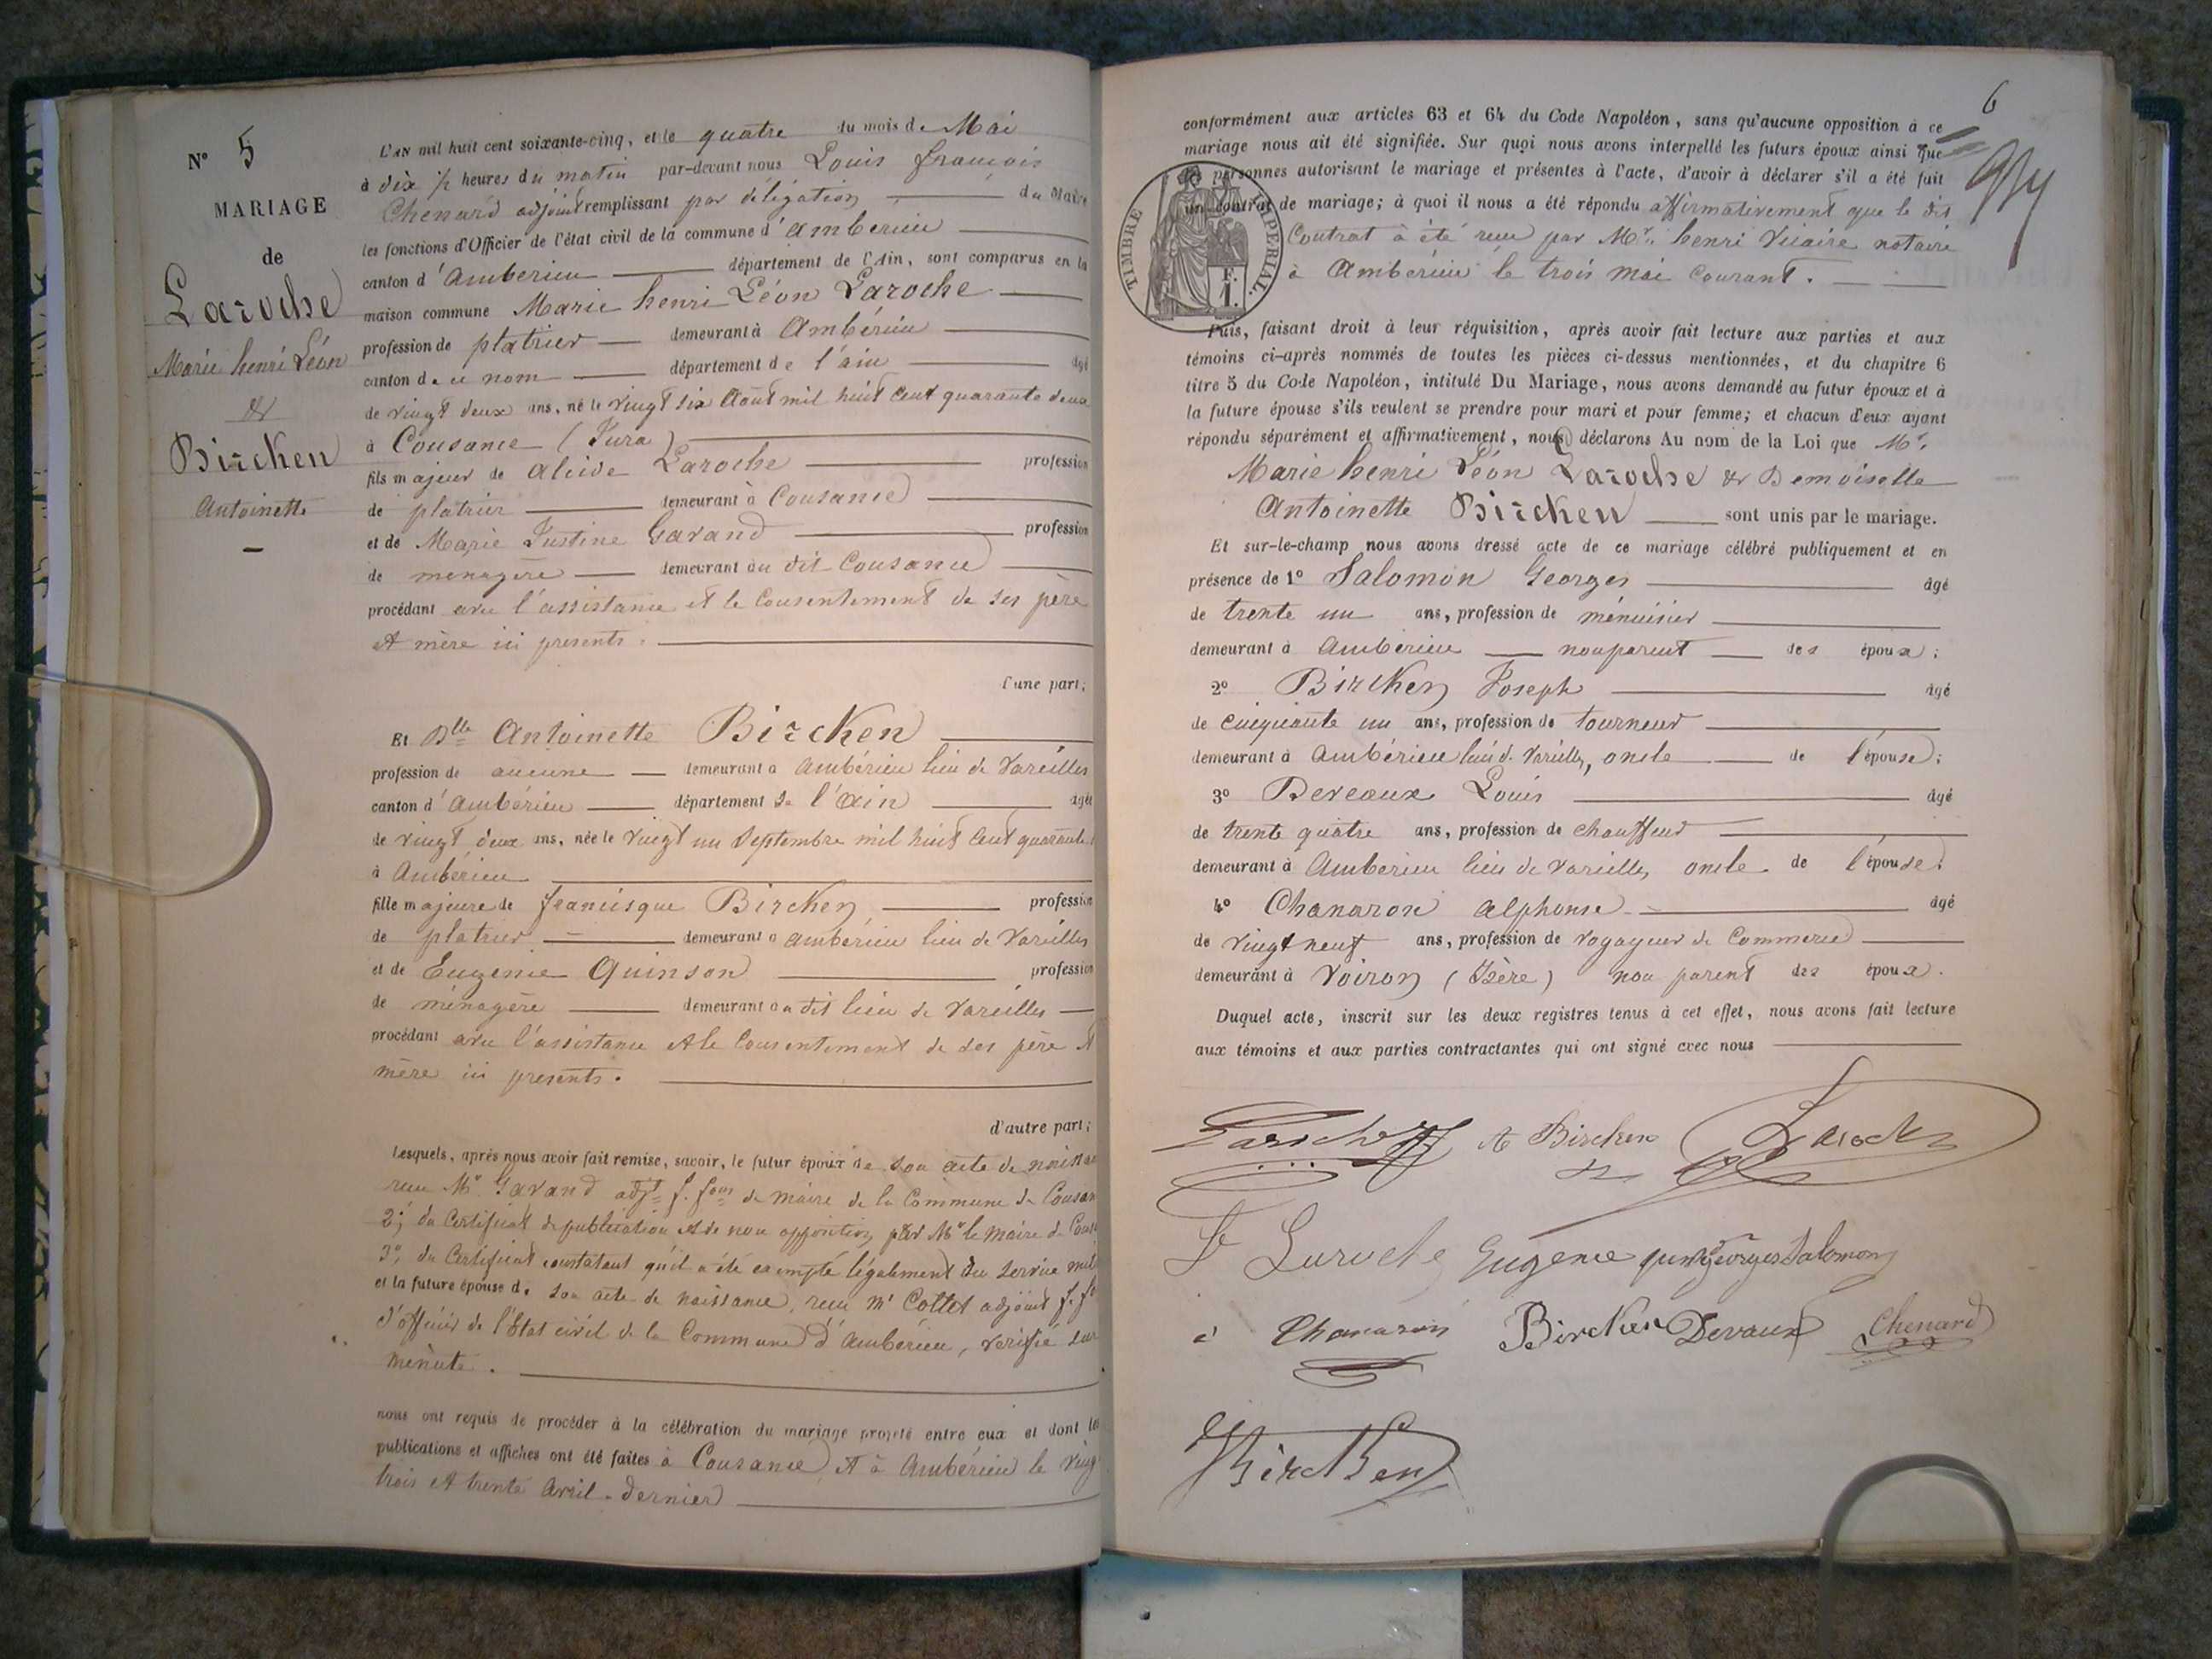 N° 5
MARIAGE
de
Laroche
Marie henri Léon
&
Bircken
Antoinette
L'AN mil huit cent soixante-cinq, et le quatre du mois de Mai
à dix ½ heures du matin par-devant nous Louis françois
Chenard adjoint remplissant par délégation du Maire
les fonctions d'Officier de l'état civil de la commune d'Amberieu
canton d'Amberieu département de l'Ain, sont comparus en la
maison commune Marie henri Léon Laroche
profession de platrier demeurant à Ambérieu
canton de ce nom département de l'ain âgé
de vingt deux ans, né le vingt six Août mil huit cent quarante deux
à Cousance (Jura)
fils majeur de Alcide Laroche profession
de platrier demeurant à Cousance
et de Marie Justine Gavand profession
de menagère demeurant au dit Cousance
procédant avec l'assistance et le Consentement de ses père
et mère ici presents.
d'une part;
Et Dlle Antoinette Bircken
profession de aucune demeurant à Ambérieu lieu de Vareilles
canton d'Ambérieu département de l'ain âgée
de vingt deux ans, née le vingt un Septembre mil huit cent quarante
à Ambérieu
fille majeure de francisque Bircken profession
de platrier demeurant à Ambérieu lieu de Vareilles
et de Eugenie Quinson profession
de ménagère demeurant au dit lieu de Vareilles
procédant avec l'assistance et le Consentement de ses père et
mère ici presents.
d'autre part;
Lesquels, après nous avoir fait remise, savoir, le futur époux de son acte de
reçu Mr Gavand adjt f. fons de maire de la Commune de
2°, du Certificat de publication et de non opposition par Mr le Maire de
3°, du Certificat constatant qu'il a été exempté légalement du Service
et la future épouse de son acte de naissance, reçu Mr Cottet adjoint
d'officier de l'État civil de la Commune d'Ambérieu, vérifié sur
minute.
nous ont requis de procéder à la célébration du mariage projeté entre eux et dont les
publications et affiches ont été faites à Cousance et à Ambérieu le
trois et trente Avril dernier
6
conformément aux articles 63 et 64 du Code Napoléon, sans qu'aucune opposition à ce
mariage nous ait été signifiée. Sur quoi nous avons interpellé les futurs époux ainsi que
les personnes autorisant le mariage et présentes à l'acte, d'avoir à déclarer s'il a été fait
un contrat de mariage; à quoi il nous a été répondu affirmativement que le dit
Contrat à été reçu par Mr. henri Vicaire notaire
à Ambérieu le trois mai Courant.
TIMBRE IMPERIAL.
F.
1.
Puis, faisant droit à leur réquisition, après avoir fait lecture aux parties et aux
témoins ci-après nommés de toutes les pièces ci-dessus mentionnées, et du chapitre 6
titre 5 du Code Napoléon, intitulé Du Mariage, nous avons demandé au futur époux et à
la future épouse s'ils veulent se prendre pour mari et pour femme; et chacun d'eux ayant
répondu séparément et affirmativement, nous déclarons Au nom de la Loi que Mr.
Marie henri Léon Laroche & Demoiselle
Antoinette Bircken sont unis par le mariage.
Et sur-le-champ nous avons dressé acte de ce mariage célébré publiquement et en
présence de 1° Salomon Georges âgé
de trente un ans, profession de ménuisier
demeurant à Ambérieu non parent des époux;
2° Bircken Joseph âgé
de cinquante un ans, profession de tourneur
demeurant à Ambérieu lieu d. Vareilles, oncle de l'épouse;
3° Deveaux Louis âgé
de trente quatre ans, profession de chauffeur
demeurant à Ambérieu lieu de Vareilles oncle de l'épouse.
4° Chanaron Alphonse âgé
de vingt neuf ans, profession de voyageur de Commerce
demeurant à Voiron (Isère) non parent des époux.
Duquel acte, inscrit sur les deux registres tenus à cet effet, nous avons fait lecture
aux témoins et aux parties contractantes qui ont signé avec nous
A Bircken Laroche
Laroche Eugenie Georges Salomon
Chanaron Bircken Devaux Chenard
Bircken